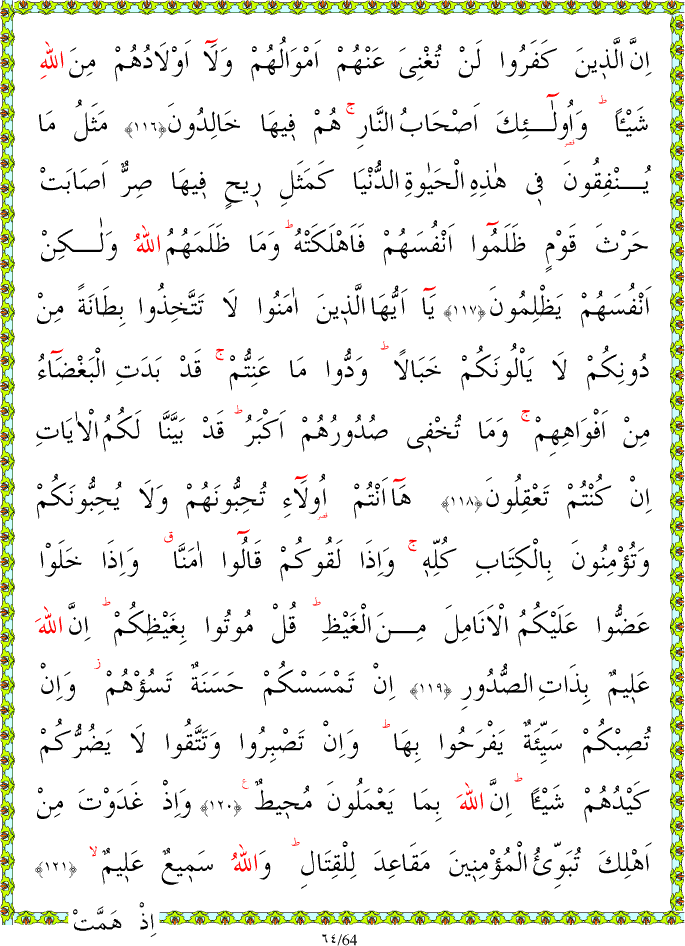 اِنَّ الَّذٖينَ كَفَرُوا لَنْ تُغْنِىَ عَنْهُمْ اَمْوَالُهُمْ وَلَٓا اَوْلَادُهُمْ مِنَ اللّٰهِ
شَيْـًٔا ؕ وَاُولٰٓئِكَ اَصْحَابُ النَّارِ ۚ هُمْ فٖيهَا خَالِدُونَ ﴿١١٦﴾ مَثَلُ مَا
يُنْفِقُونَ فٖى هٰذِهِ الْحَيٰوةِ الدُّنْيَا كَمَثَلِ رٖيحٍ فٖيهَا صِرٌّ اَصَابَتْ
حَرْثَ قَوْمٍ ظَلَمُٓوا اَنْفُسَهُمْ فَاَهْلَكَتْهُ ؕ وَمَا ظَلَمَهُمُ اللّٰهُ وَلٰكِنْ
اَنْفُسَهُمْ يَظْلِمُونَ ﴿١١٧﴾ يَٓا اَيُّهَا الَّذٖينَ اٰمَنُوا لَا تَتَّخِذُوا بِطَانَةً مِنْ
دُونِكُمْ لَا يَاْلُونَكُمْ خَبَالًا ؕ وَدُّوا مَا عَنِتُّمْ ۚ قَدْ بَدَتِ الْبَغْضَٓاءُ
مِنْ اَفْوَاهِهِمْ ۚ وَمَا تُخْفٖى صُدُورُهُمْ اَكْبَرُ ؕ قَدْ بَيَّنَّا لَكُمُ الْاٰيَاتِ
اِنْ كُنْتُمْ تَعْقِلُونَ ﴿١١٨﴾ هَٓا اَنْتُمْ اُولَٓاءِ تُحِبُّونَهُمْ وَلَا يُحِبُّونَكُمْ
وَتُؤْمِنُونَ بِالْكِتَابِ كُلِّهٖ ۚ وَاِذَا لَقُوكُمْ قَالُٓوا اٰمَنَّا ۗ وَاِذَا خَلَوْا
عَضُّوا عَلَيْكُمُ الْاَنَامِلَ مِنَ الْغَيْظِ ؕ قُلْ مُوتُوا بِغَيْظِكُمْ ؕ اِنَّ اللّٰهَ
عَلٖيمٌ بِذَاتِ الصُّدُورِ ﴿١١٩﴾ اِنْ تَمْسَسْكُمْ حَسَنَةٌ تَسُؤْهُمْ ؗ وَاِنْ
تُصِبْكُمْ سَيِّئَةٌ يَفْرَحُوا بِهَا ؕ وَاِنْ تَصْبِرُوا وَتَتَّقُوا لَا يَضُرُّكُمْ
كَيْدُهُمْ شَيْـًٔا ؕ اِنَّ اللّٰهَ بِمَا يَعْمَلُونَ مُحٖيطٌ ﴿١٢٠﴾ وَاِذْ غَدَوْتَ مِنْ
اَهْلِكَ تُبَوِّئُ الْمُؤْمِنٖينَ مَقَاعِدَ لِلْقِتَالِ ؕ وَاللّٰهُ سَمٖيعٌ عَلٖيمٌ ۙ ﴿١٢١﴾
اِذْ هَمَّتْ
٦٤/64